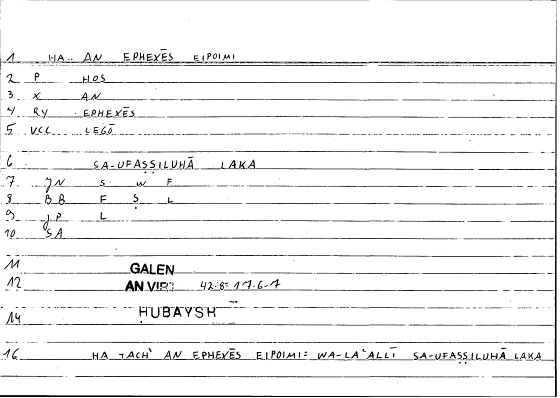 1 HA.. AN EPHEXĒS EIPOIMI
2 P HOS
3 X AN
4 RY EPHEXĒS
5 VCL LEGŌ
6 SA-UFAṢṢILUHĀ LAKA
7 JN S W F
8 BB F Ṣ L
9 JP L
10 SA
11 GALEN
12 AN VIRT 42.8-17.6-7
14 ḤUBAYSH
16 HA TACH' AN EPHEXĒS EIPOIMI: WA-LAʿALLĪ SA-UFAṢṢILUHĀ LAKA